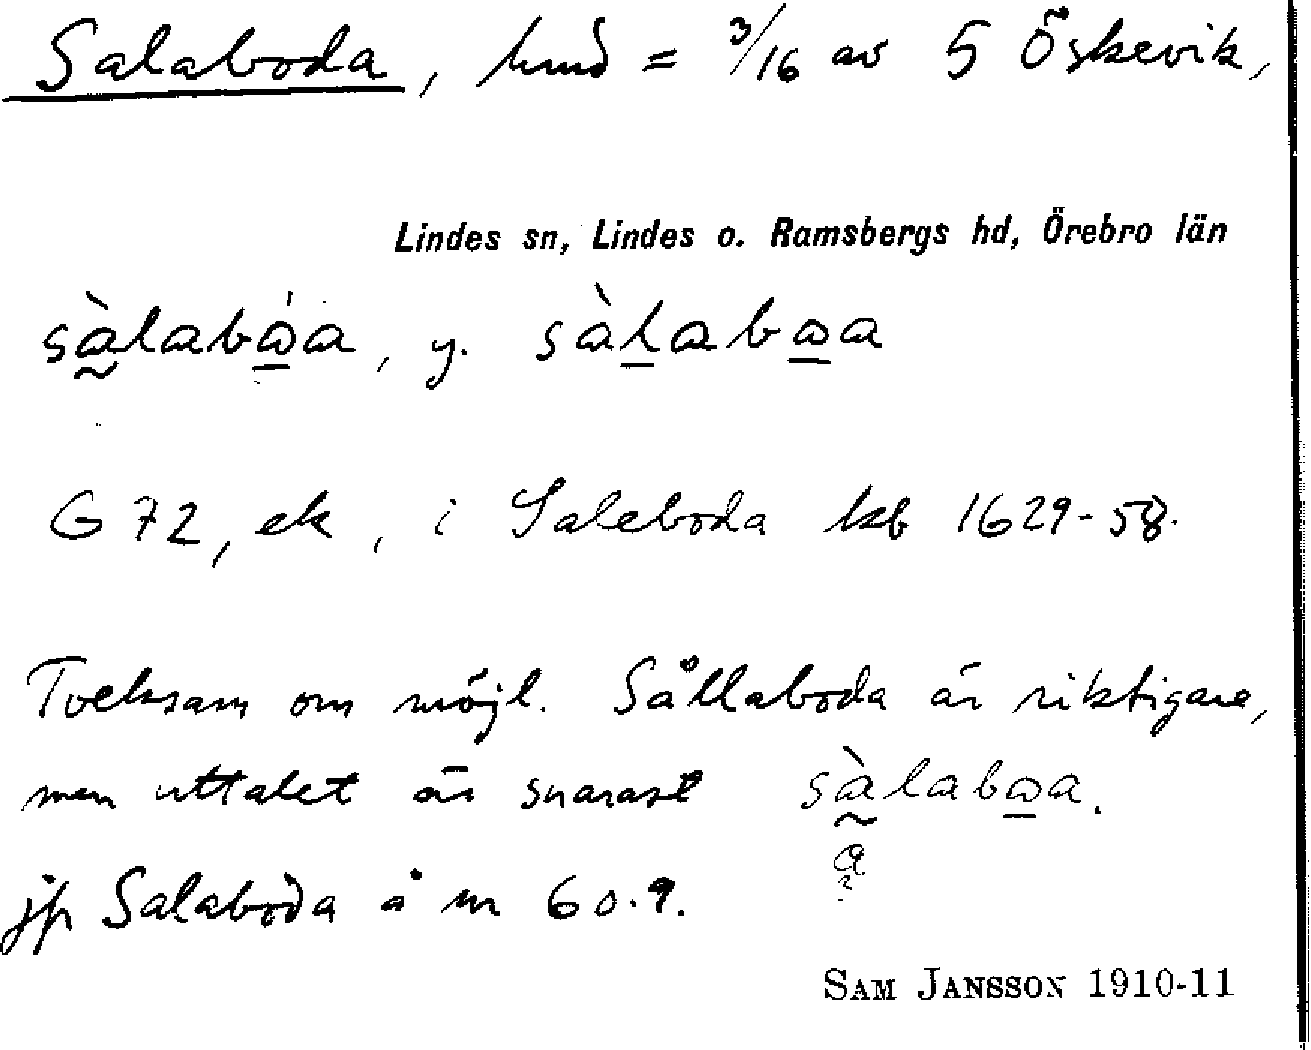 Salaboda, hmd = 3/16 av 5 Öskevik,
Lindes sn, Lindes o. Ramsbergs hd, Örebro län
sàlabωa, y. sàlabωa
G 72, ek, i Saleboda kb 1629-58.
Tveksam om möjl. Sållaboda är riktigare,
men uttalet är snarast sàlabωa.
a
jfr Salaboda å nr 60.9.
SAM JANSSON 1910-11